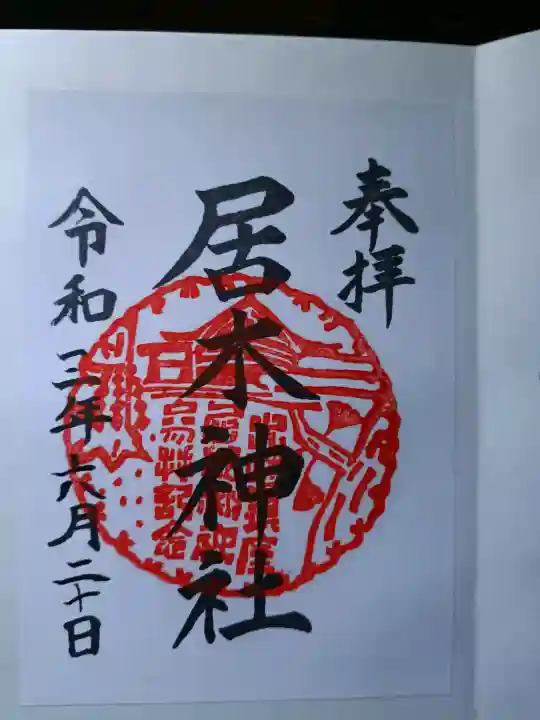 奉拝
居木神社
令和三年六月二十日